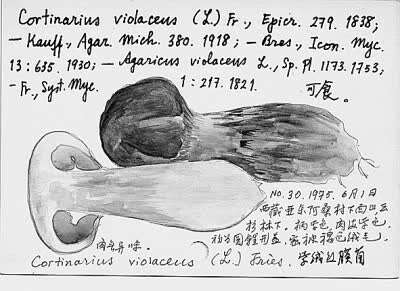 Cortinarius violaceus (L.) Fr., Epicr. 279. 1838;
— Kauff., Agar. Mich. 380. 1918; — Bres., Icon. Myc.
13:635. 1930; — Agaricus violaceus L., Sp. Pl. 1173. 1753;
— Fr., Syst. Myc. 1:217. 1821. 可食。
No. 30. 1975. 6月1日
西藏亚东阿桑村下西山云
杉林下。柄紫色,肉浅紫色,
初为圆锥形盖,密被褐色绒毛,
肉无异味。
Cortinarius violaceus (L.) Fries. 紫绒丝膜菌